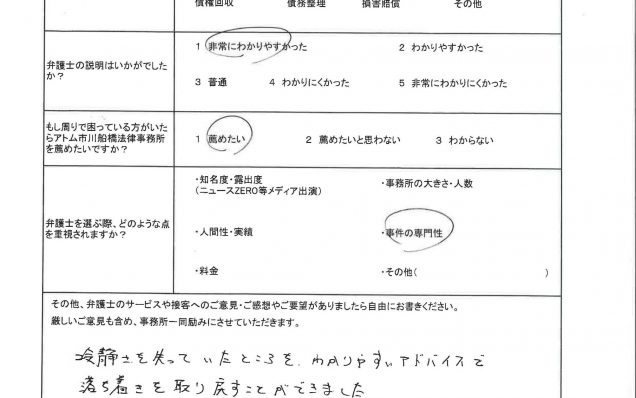 債権回収 債務整理 損害賠償 その他
弁護士の説明はいかがでしたか?
1 非常にわかりやすかった 2 わかりやすかった
3 普通 4 わかりにくかった 5 非常にわかりにくかった
もし周りで困っている方がいたらアトム市川船橋法律事務所を薦めたいですか?
1 薦めたい 2 薦めたいと思わない 3 わからない
弁護士を選ぶ際、どのような点を重視されますか?
・知名度・露出度
(ニュースZERO等メディア出演)
・事務所の大きさ・人数
・人間性・実績
・事件の専門性
・料金
・その他( )
その他、弁護士のサービスや接客へのご意見・ご感想やご要望がありましたら自由にお書きください。
厳しいご意見も含め、事務所一同励みにさせていただきます。
冷静さを失っていたところを、わかりやすいアドバイスで
落ち着きを取り戻すことができました